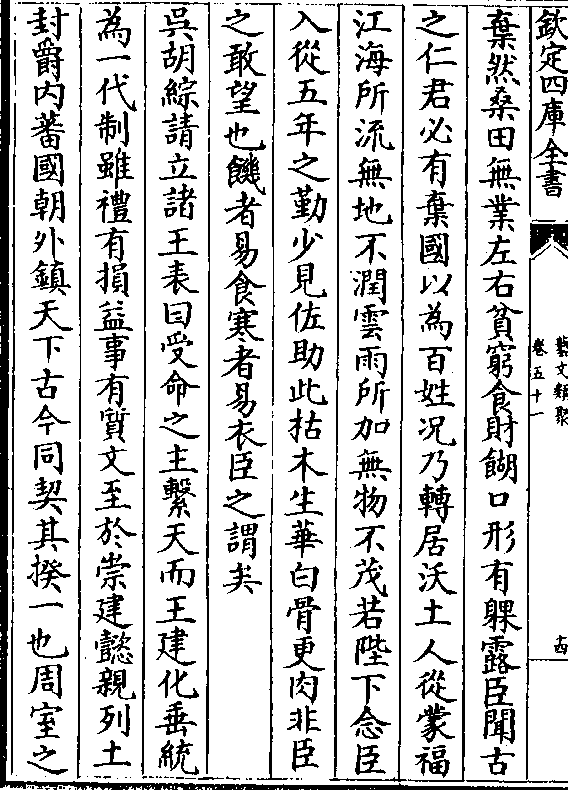 欽定四庫全書
藝文類聚
卷五十一
十四
棄然桑田無業左右貧窮食財餬口形有躶露臣聞古
之仁君必有棄國以為百姓况乃轉居沃土人從蒙福
江海所流無地不潤雲雨所加無物不茂若陛下念臣
入從五年之勤少見佐助此枯木生華白骨更肉非臣
之敢望也饑者易食寒者易衣臣之謂矣
吳胡綜請立諸王表曰受命之主繫天而王建化垂統
為一代制雖禮有損益事有質文至於崇建懿親列土
封爵内蕃國朝外鎮天下古今同契其揆一也周室之